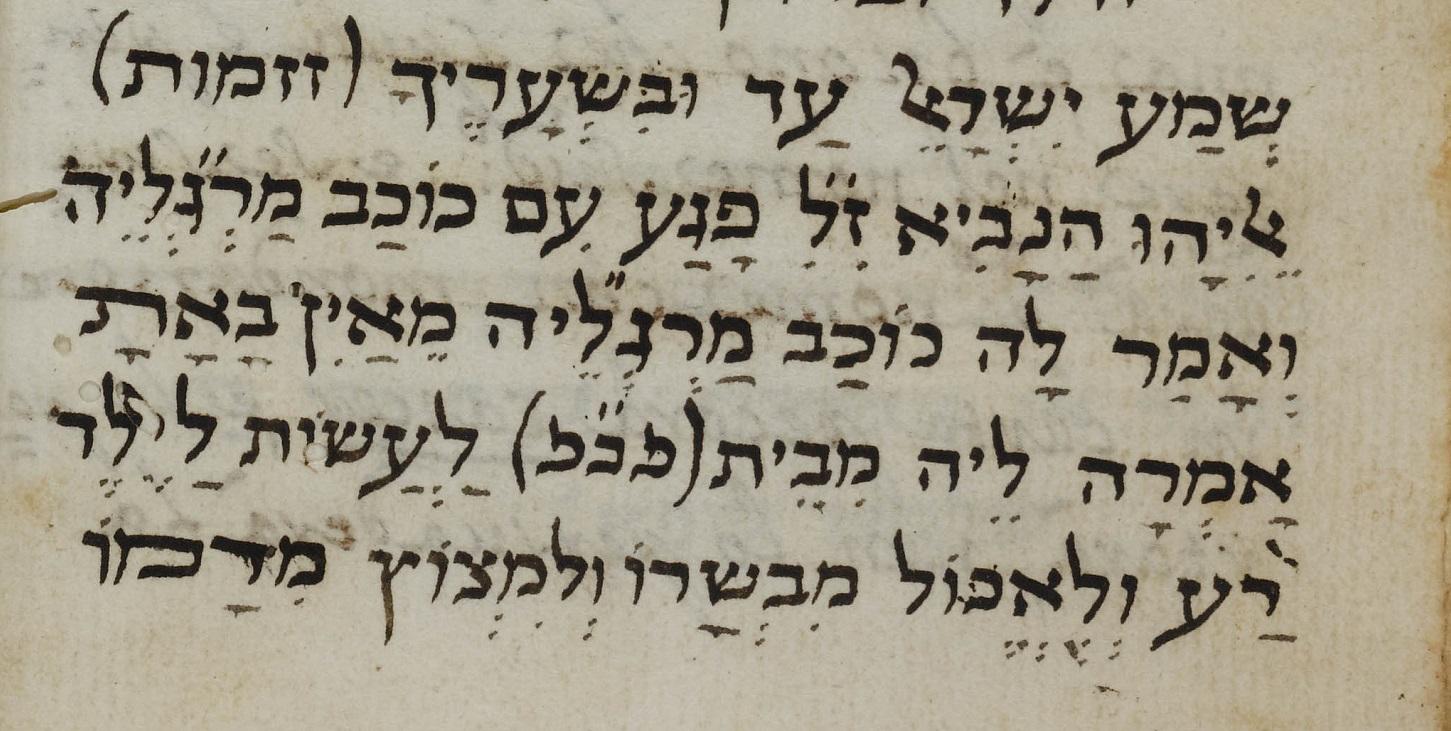 שְׁמַע יִשְׂרָאֵל עַד וּבִשְׁעָרֶיךָ (זזמות)
אֵלִיָהוּ הַנָבִיא זִ״ל פָּגַע עִם כּוֹכַב מַרְגְלֵיה
וְאָמַר לָה כּוֹכַב מַרְגְלֵיה מֵאַיִן בָּאָתָ
אָמְרָה לֵיה מִבֵּית (פכ״פ) לַעֲשׂית לַיֶלֶד
רַע וְלֶאֱכוֹל מִבְּשָׂרוֹ וְלִמְצוֹץ מִדָמוֹ